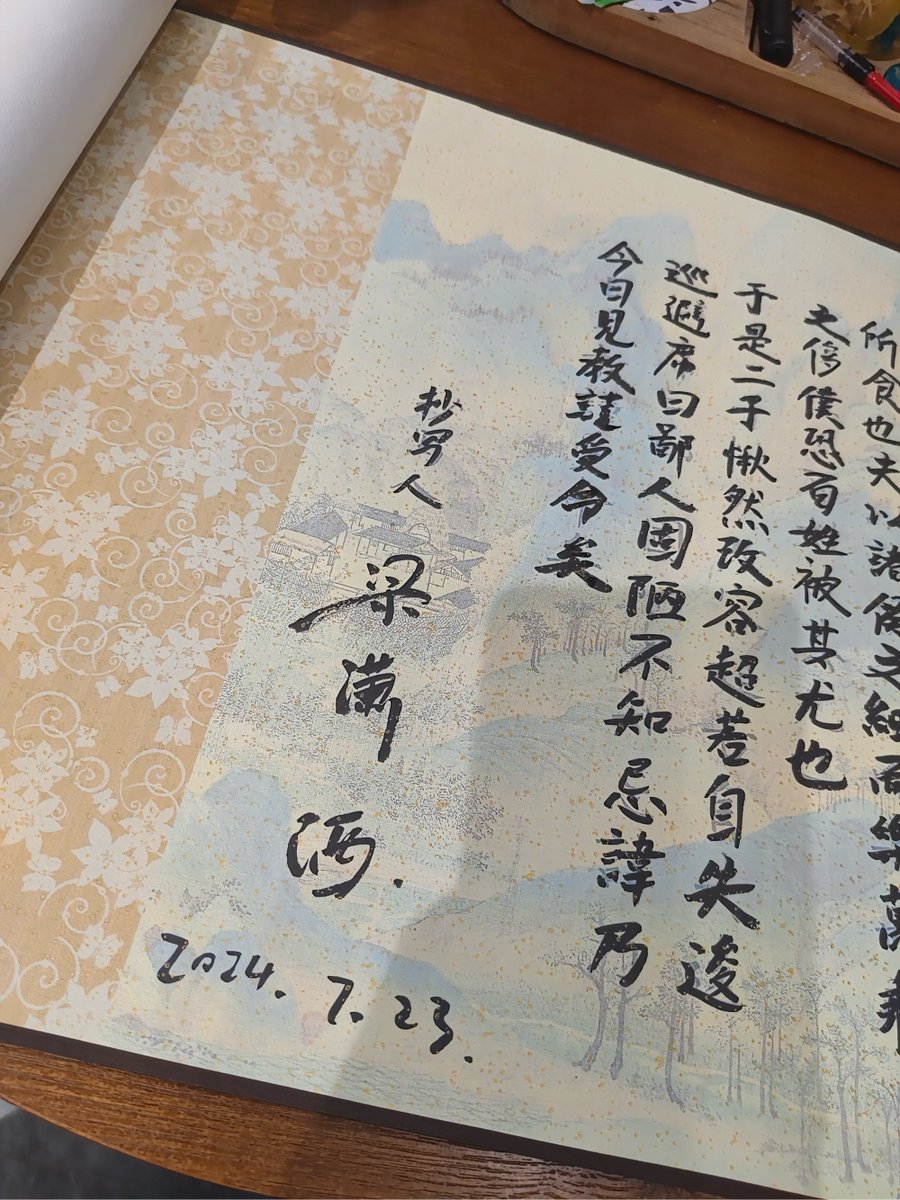 所食也夫以諸侯之細而樂萬乘
之侈僕恐百姓被其尤也
于是二子愀然改容超若自失逡
巡避席曰鄙人固陋不知忌諱乃
今日見教謹受令矣
抄写人
梁潇洒.
2024.7.23.